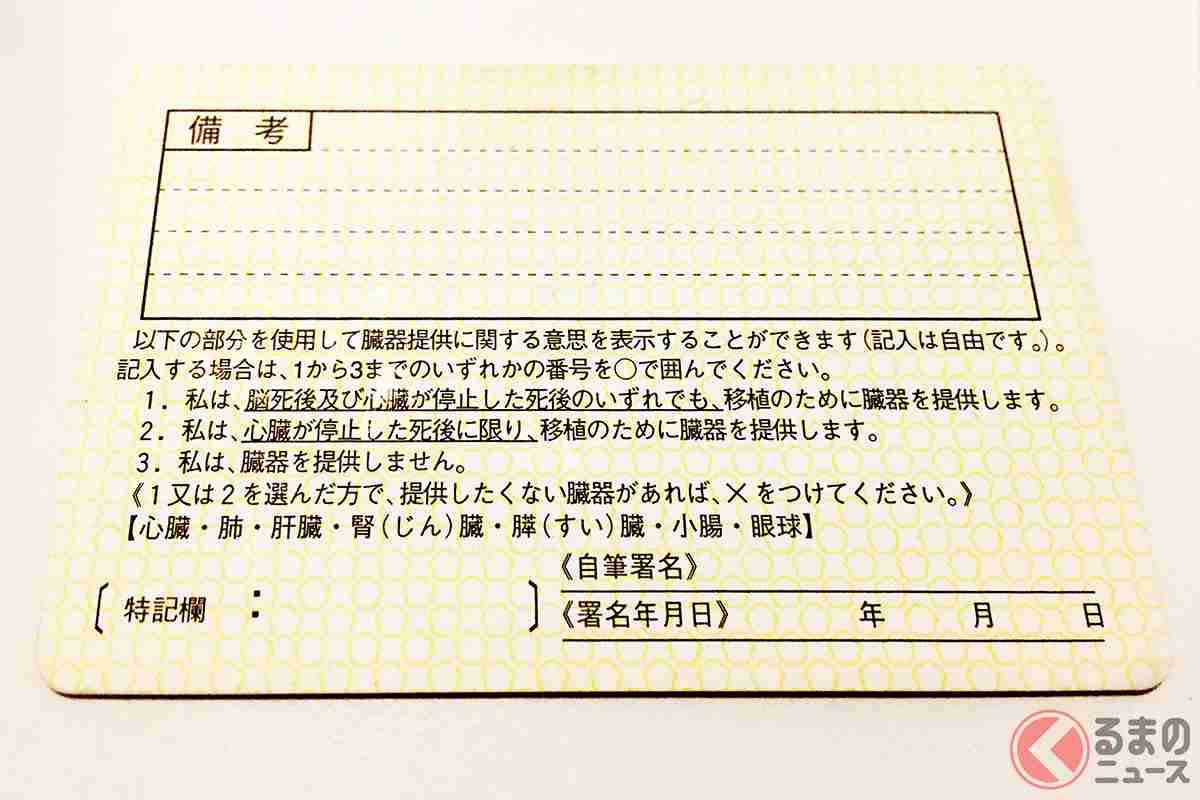 備考
以下の部分を使用して臓器提供に関する意思を表示することができます(記入は自由です。)。
記入する場合は、1から3までのいずれかの番号を○で囲んでください。
1. 私は、脳死後及び心臓が停止した死後のいずれでも、移植のために臓器を提供します。
2. 私は、心臓が停止した死後に限り、移植のために臓器を提供します。
3. 私は、臓器を提供しません。
《1又は2を選んだ方で、提供したくない臓器があれば、×をつけてください。》
【心臓・肺・肝臓・腎(じん)臓・膵(すい)臓・小腸・眼球】
〔特記欄:〕
《自筆署名》
《署名年月日》 年 月 日
くるまの
ニュース